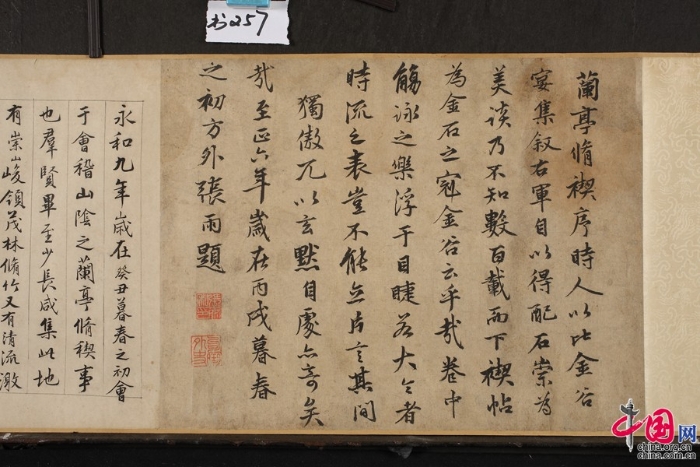 书257
蘭亭脩禊序時人以比金谷
宴集叙右軍自以得配石崇為
美談乃不知數百載而下禊帖
為金石之冠金谷云乎哉卷中
觴詠之樂浮于目睫若大令者
時流之表豈不能立片言其間
獨傲兀以玄默自處亦奇矣
哉至正六年歲在丙戌暮春
之初方外張雨題
永和九年歲在癸丑暮春之初會
于會稽山陰之蘭亭脩稧事
也羣賢畢至少長咸集此地
有崇山峻領茂林脩竹又有清流激
中国网
china.org.cn
china.com.cn